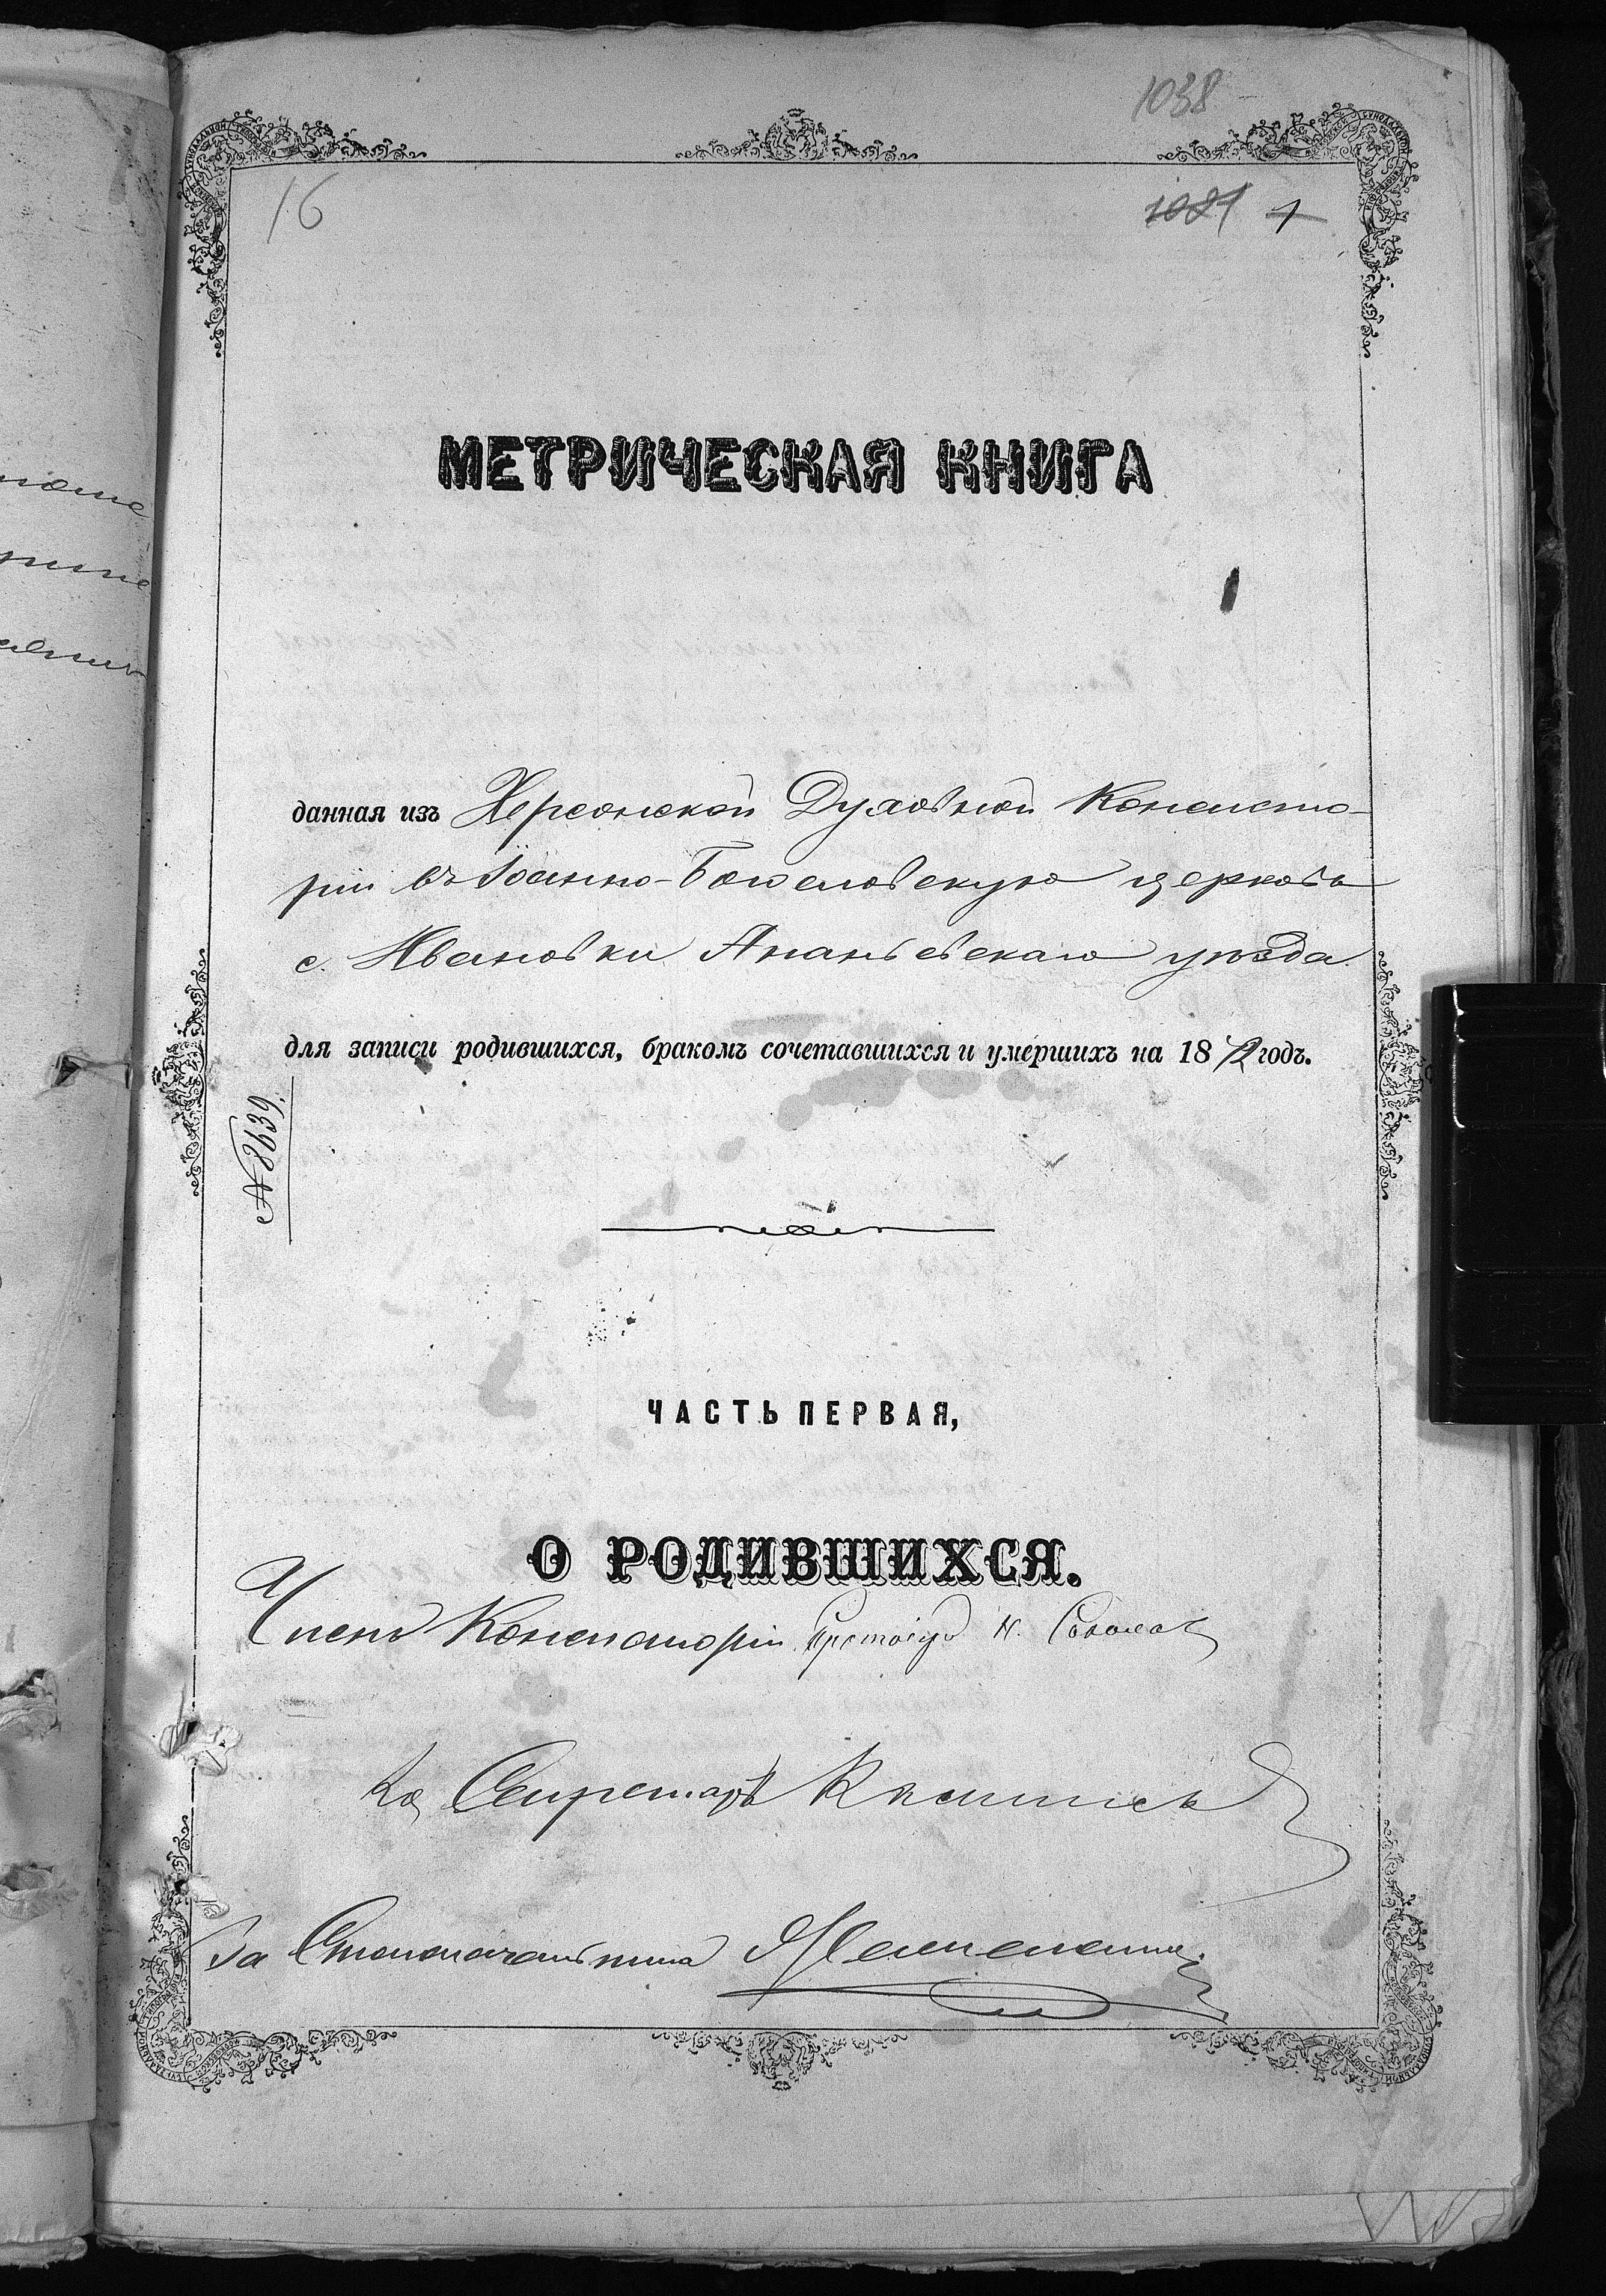 1038
16
1081 1
МЕТРИЧЕСКАЯ КНИГА
данная изъ Херсонской Духовной Консисто-
ріи въ Іоанно-Богословскую церковь
с. Ивановки Ананьевскаго уѣзда
для записи родившихся, бракомъ сочетавшихся и умершихъ на 1872 годъ.
№ 8639.
ЧАСТЬ ПЕРВАЯ,
О РОДИВШИХСЯ.
Членъ Консисторіи Протоіер Н. Соколов
Секретарь
За Столоначальника